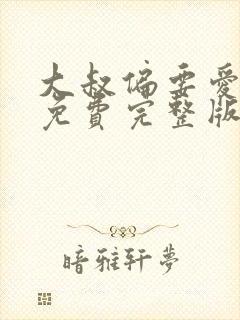 大叔偏要爱
免费完整版
暗雅轩梦